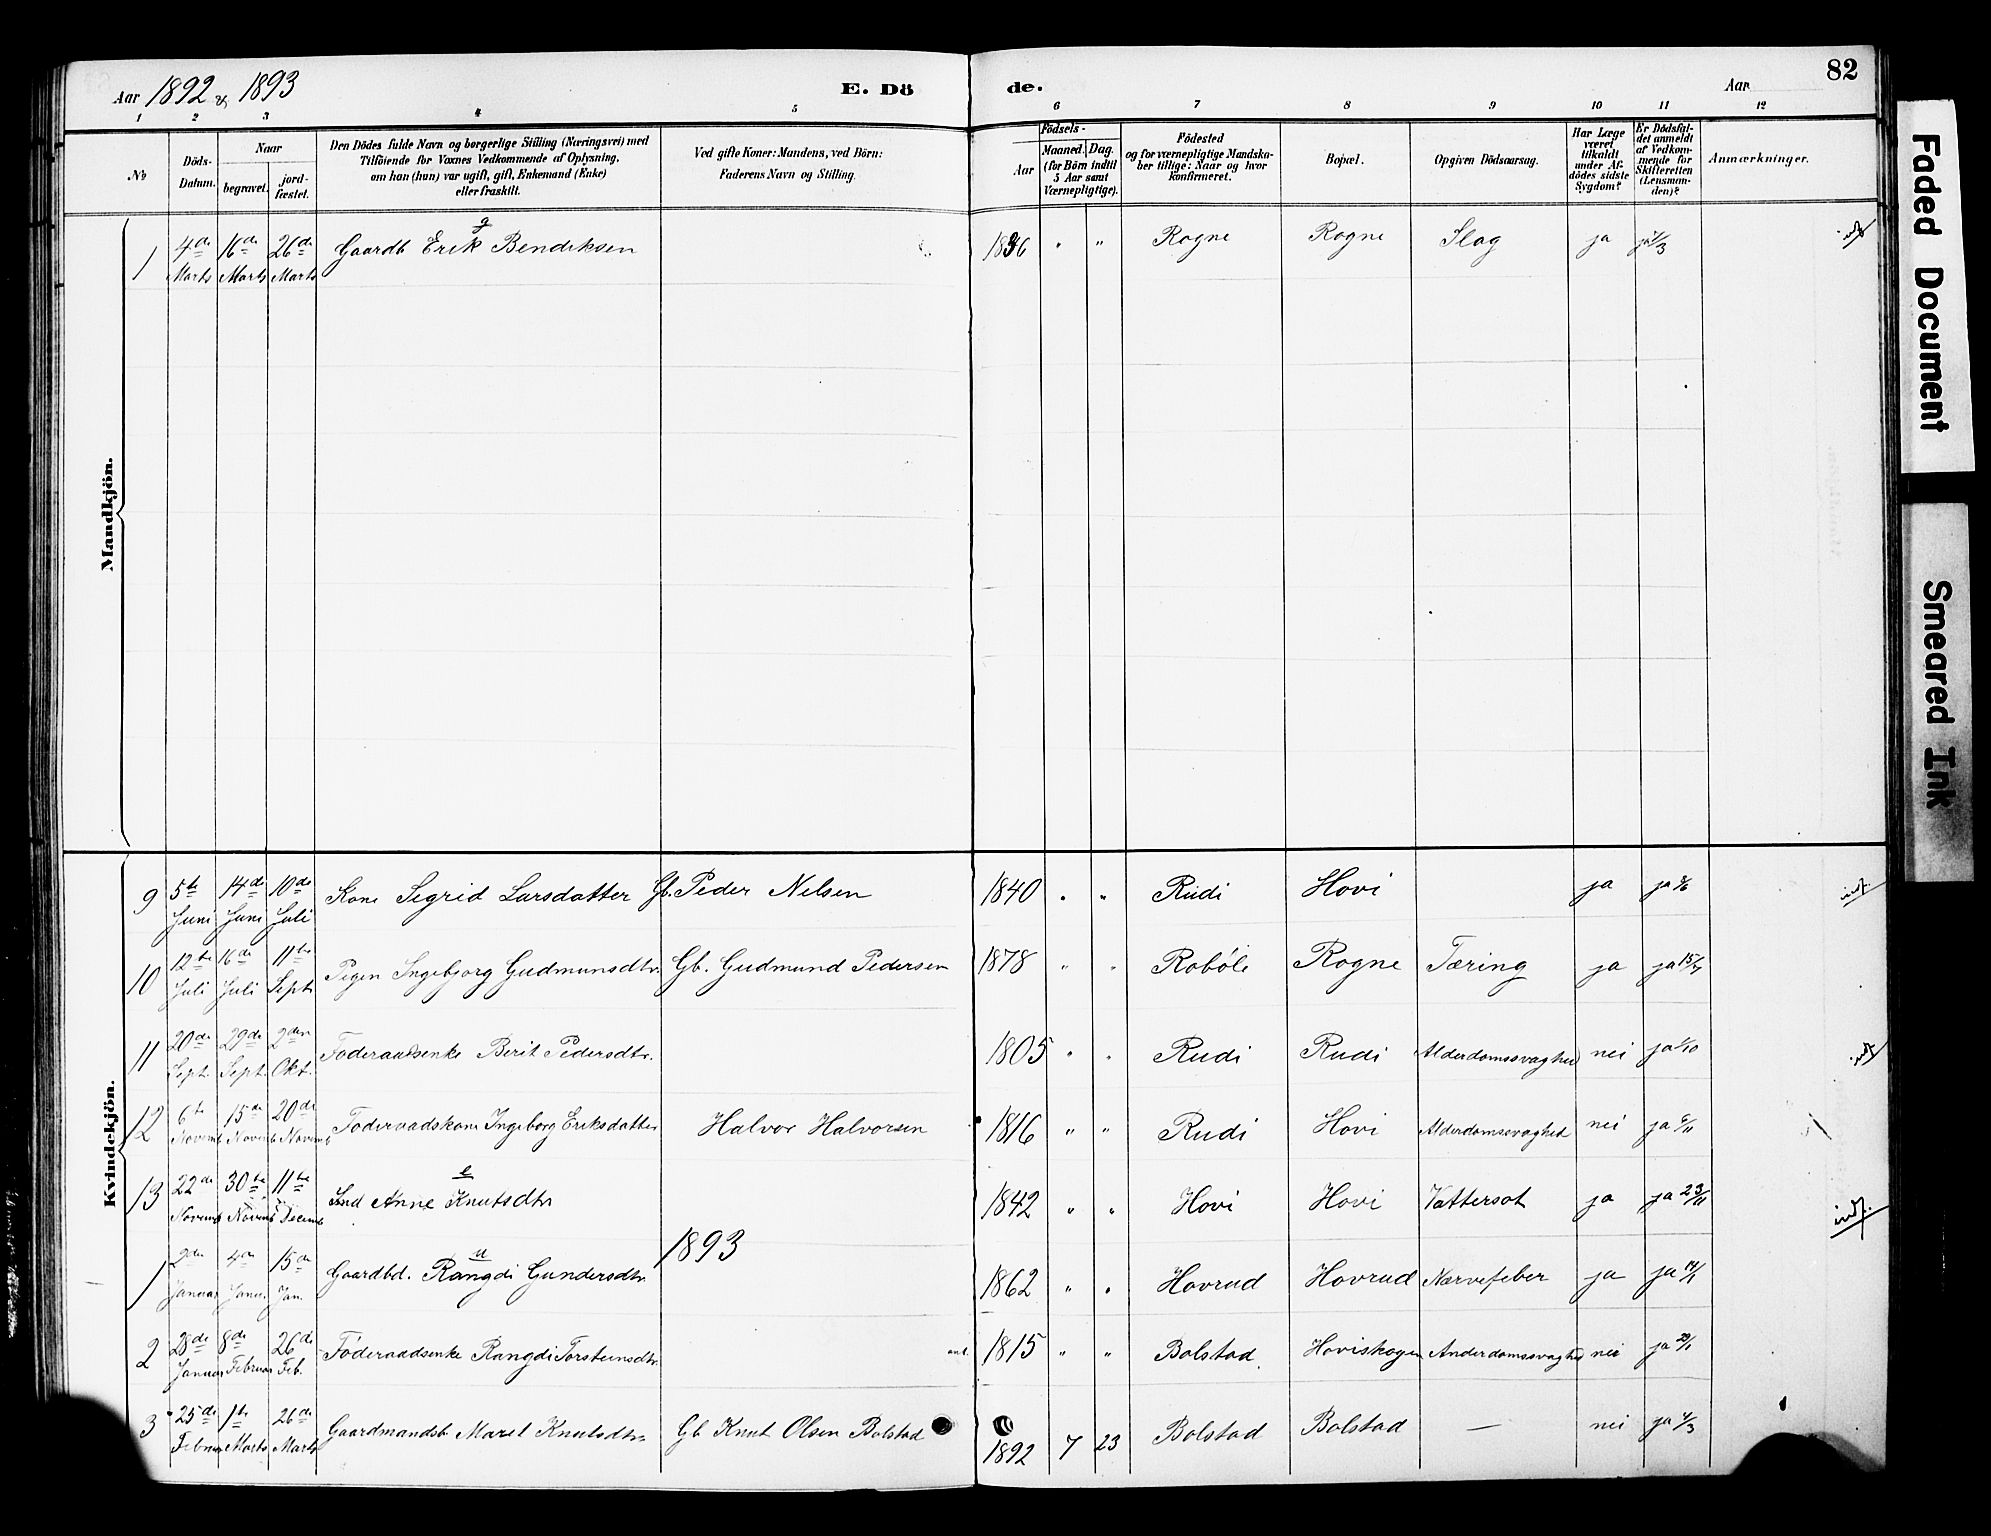 Aar 1892 & 1893
E. Dö
de.
Aar
82
1 2 3 4 5 6 7 8 9 10 11 12
№
Döds-
Datum.
Naar
begravet.
jord-
fæstet.
Den Dödes fulde Navn og borgerlige Stilling (Næringsvei) med
Tilföiende for Voxnes Vedkommende af Oplysning,
om han (hun) var ugift, gift, Enkemand (Enke)
eller fraskilt.
Ved gifte Koner: Mandens, ved Börn:
Faderens Navn og Stilling.
Födsels-
Aar
Maaned. Dag.
(for Börn indtil
5 Aar samt
Værnepligtige).
Födested
og for værnepligtige Mandska-
ber tillige: Naar og hvor
konfirmeret.
Bopæl.
Opgiven Dödsaarsag.
Har Læge
været
tilkaldt
under Af-
dödes sidste
Sygdom?
Er Dödsfal-
det anmeldt
af Vedkom-
mende for
Skifteretten
(Lensman-
den)?
Anmærkninger.
Mandkjön.
g
1 4de Marts 16de Marts 26de Marts Gaardb Erik Bendiksen 1836 " " Rogne Rogne Slag ja ja
Kvindekjön.
9 5te Juni 14de Juni 10de Juli Kone Sigrid Larsdatter Gb. Peder Nilsen 1840 " " Rudi Hovi ja ja 8/6
10 12te Juli 16de Juli 11te Sept. Pigen Ingebjorg Gudmunsdtr. Gb. Gudmund Pedersen 1878 " " Roböle Rogne Tæring ja ja 15/7
11 20de Sept. 29de Sept. 2den Okt. Föderaadsenke Berit Pedersdtr. 1805 " " Rudi Rudi Alderdomssvaghed nei ja 1/10
12 6te Novemb 15de Novemb 20de Novemb Föderaadskone Ingeborg Eriksdatter Halvor Halvorsen 1816 " " Rudi Hovi Alderdomssvaghed nei ja 6/11
e
13 22de Novemb 30te Novemb 11te Decemb Ind Anne Knutsdtr 1842 " " Hovi Hovi Vattersot ja ja 23/11
1893
u
1 2den Januar 4de Janu. 15de Jan. Gaardbd. Rangdi Gundersdtr 1862 " " Hovrud Hovrud Nervefeber ja ja
2 28de Januar 8de Februar 26de Feb. Föderaadsenke Rangdi Torsteinsdtr. 1815 " " Bolstad Haviskogen Anderdomssvaghed nei ja
3 25de Februar 1te Marts 26de Marts Gaardmandsb Marit Knutsdtr Gb Knut Olsen Bolstad 1892 7 23 Bolstad Bolstad — nei ja
Faded Document
Smeared Ink